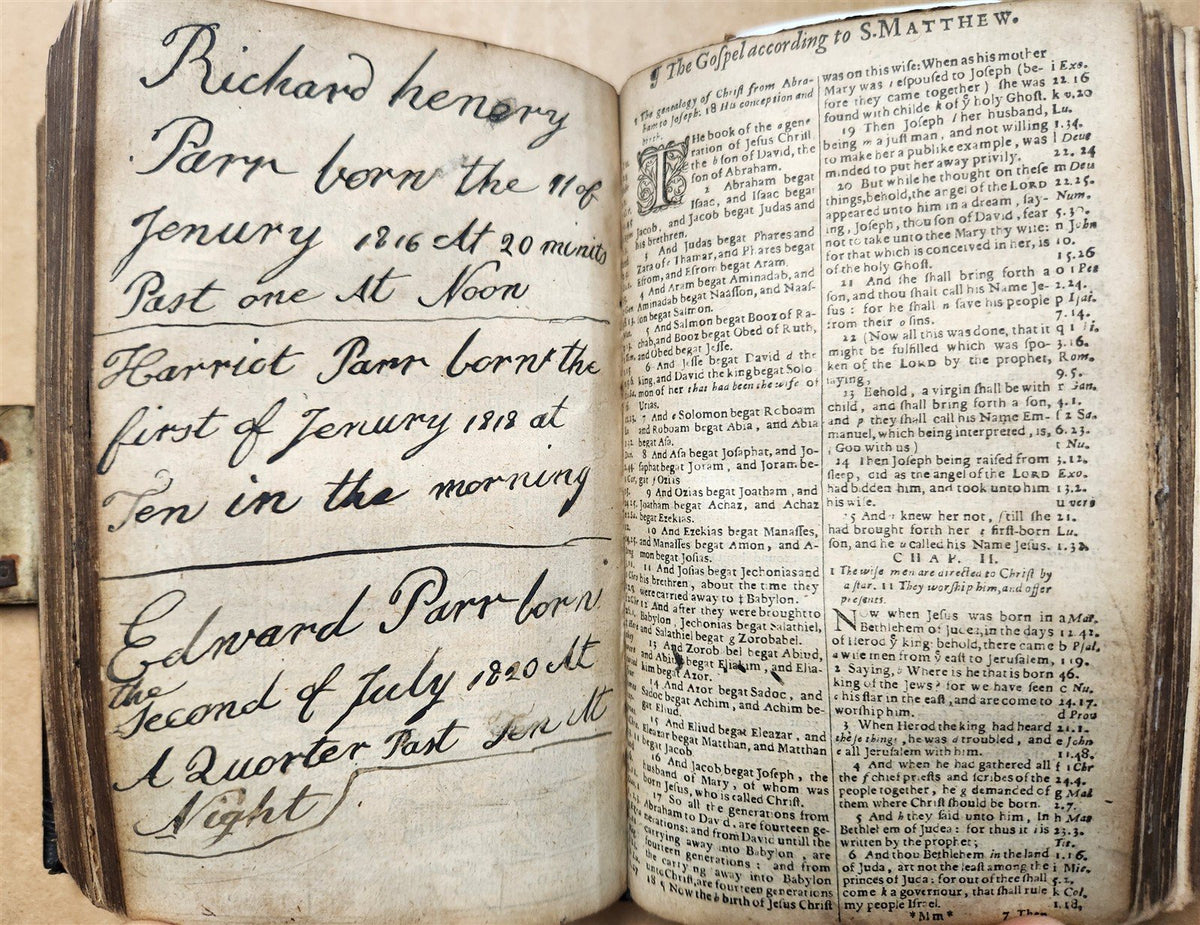 Richard henery
Parr born the 11 of
Jenury 1816 At 20 minits
Past one At Noon
Harriot Parr born the
first of Jenury 1818 at
Ten in the morning
Edward Parr born
the
Second of July 1820 At
A Quorter Past Ten At
Night
¶ The Goſpel according to S. MATTHEW.
1 The genealogy of Chriſt from Abra-
ham to Joſeph. 18 His conception and
birth.
THe book of the a gene
ration of Jeſus Chriſt
the b ſon of David, the
ſon of Abraham.
2 Abraham begat
Iſaac, and Iſaac begat
Jacob, and Jacob begat Judas and
his brethren.
3 And Judas begat Phares and
Zara of c Thamar, and Phares begat
Eſrom, and Eſrom begat Aram.
4 And Aram begat Aminadab, and
Aminadab begat Naaſſon, and Naaſ-
ſon begat Salmon.
5 And Salmon begat Booz of Ra-
chab, and Booz begat Obed of Ruth,
and Obed begat Jeſſe.
6 And Jeſſe begat David d the
king, and David the king begat Solo-
mon of her that had been the wife of
Urias.
7 And e Solomon begat Roboam
and Roboam begat Abia, and Abia
begat Aſa.
8 And Aſa begat Joſaphat, and Jo-
ſaphat begat Joram, and Joram be-
gat f Ozias
9 And Ozias begat Joatham, and
Joatham begat Achaz, and Achaz
begat Ezekias.
10 And Ezekias begat Manaſſes,
and Manaſſes begat Amon, and A-
mon begat Joſias.
11 And Joſias begat Jechonias and
his brethren, about the time they
were carried away to ‡ Babylon.
12 And after they were brought to
Babylon, Jechonias begat Salathiel,
and Salathiel begat g Zorobabel.
13 And Zorobabel begat Abiud,
and Abiud begat Eliakim, and Elia-
kim begat Azor.
14 And Azor begat Sadoc, and
Sadoc begat Achim, and Achim be-
gat Eliud.
15 And Eliud begat Eleazar, and
Eleazar begat Matthan, and Matthan
begat Jacob
16 And Jacob begat Joſeph, the
husband of Mary, of whom was
born Jeſus, who is called Chriſt.
17 So all the generations from
Abraham to David, are fourteen ge-
nerations: and from David untill the
carrying away into Babylon, are
fourteen generations: and from
the carrying away into Babylon
unto Chriſt, are fourteen generations
18 ¶ Now the b birth of Jeſus Chriſt
was on this wiſe: When as his mother
Mary was i eſpouſed to Joſeph (be-
fore they came together) ſhe was
found with childe k of ẏ holy Ghoſt.
19 Then Joſeph l her husband,
being m a juſt man, and not willing
to make her a publike example, was
minded to put her away privily.
20 But while he thought on theſe
things, behold, the angel of the LORD
appeared unto him in a dream, ſay-
ing, Joſeph, thou ſon of David, fear
not to take unto thee Mary thy wife:
for that which is conceived in her, is
of the holy Ghoſt.
21 And ſhe ſhall bring forth a
ſon, and thou ſhalt call his Name Je-
ſus: for he ſhall n ſave his people
from their o ſins.
22 (Now all this was done, that it
might be fulfilled which was ſpo-
ken of the LORD by the prophet,
ſaying,
23 Behold, a virgin ſhall be with
child, and ſhall bring forth a ſon,
and p they ſhall call his Name Em-
manuel, which being interpreted, is,
God with us)
24 Then Joſeph being raiſed from
ſleep, did as the angel of the LORD
had bidden him, and took unto him
his wife.
25 And knew her not, ſtill ſhe
had brought forth her t firſt-born
ſon, and he u called his Name Jeſus.
CHAP. II.
1 The wiſe men are directed to Chriſt by
a ſtar. 11 They worſhip him, and offer
preſents.
NOw when Jeſus was born in
Bethlehem of Judea, in the days
of Herod ẏ king, behold, there came
a wiſe men from ẏ eaſt to Jeruſalem,
2 Saying, b Where is he that is born
king of the Jews? for we have ſeen
c his ſtar in the eaſt, and are come to
worſhip him.
3 When Herod the king had heard
theſe things, he was d troubled, and
e all Jeruſalem with him.
4 And when he had gathered all
the f chief prieſts and ſcribes of the
people together, he g demanded of
them where Chriſt ſhould be born.
5 And h they ſaid unto him, In
Bethlehem of Judea: for thus it is
written by the prophet;
6 And thou Bethlehem in the land
of Juda, art not the leaſt among the
princes of Juda: for out of thee ſhall
come k a governour, that ſhall rule
my people Iſrael.
*Mm*
7 Then
i Exo.
22 16
k v. 20
Lu.
1.34.
l Deut
22. 24
m Deu
22.25.
Num.
n John
10.
15.26
o 1 Pet
2.24.
p Iſai.
7.14.
3.16.
Rom.
9.5.
4.1.
ſ 2 Sa.
6.23.
t Nu.
3.12.
Exo.
13.2.
u vers
21.
Lu.
1.32.
a Mat.
b Pſal.
c Nu.
24.17.
d Prov
21.1.
e John
11.48.
f 1 Chr
24.4.
g Mal
2.7.
h Mat
23.3.
Tit.
1.16.
i Mic.
5.2.
k Col.
1.18.